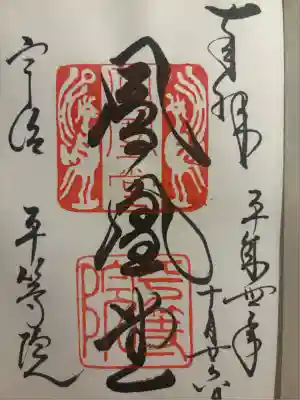 奉拝
平成四年
十月廿六日
鳳凰堂
宇治
平等院